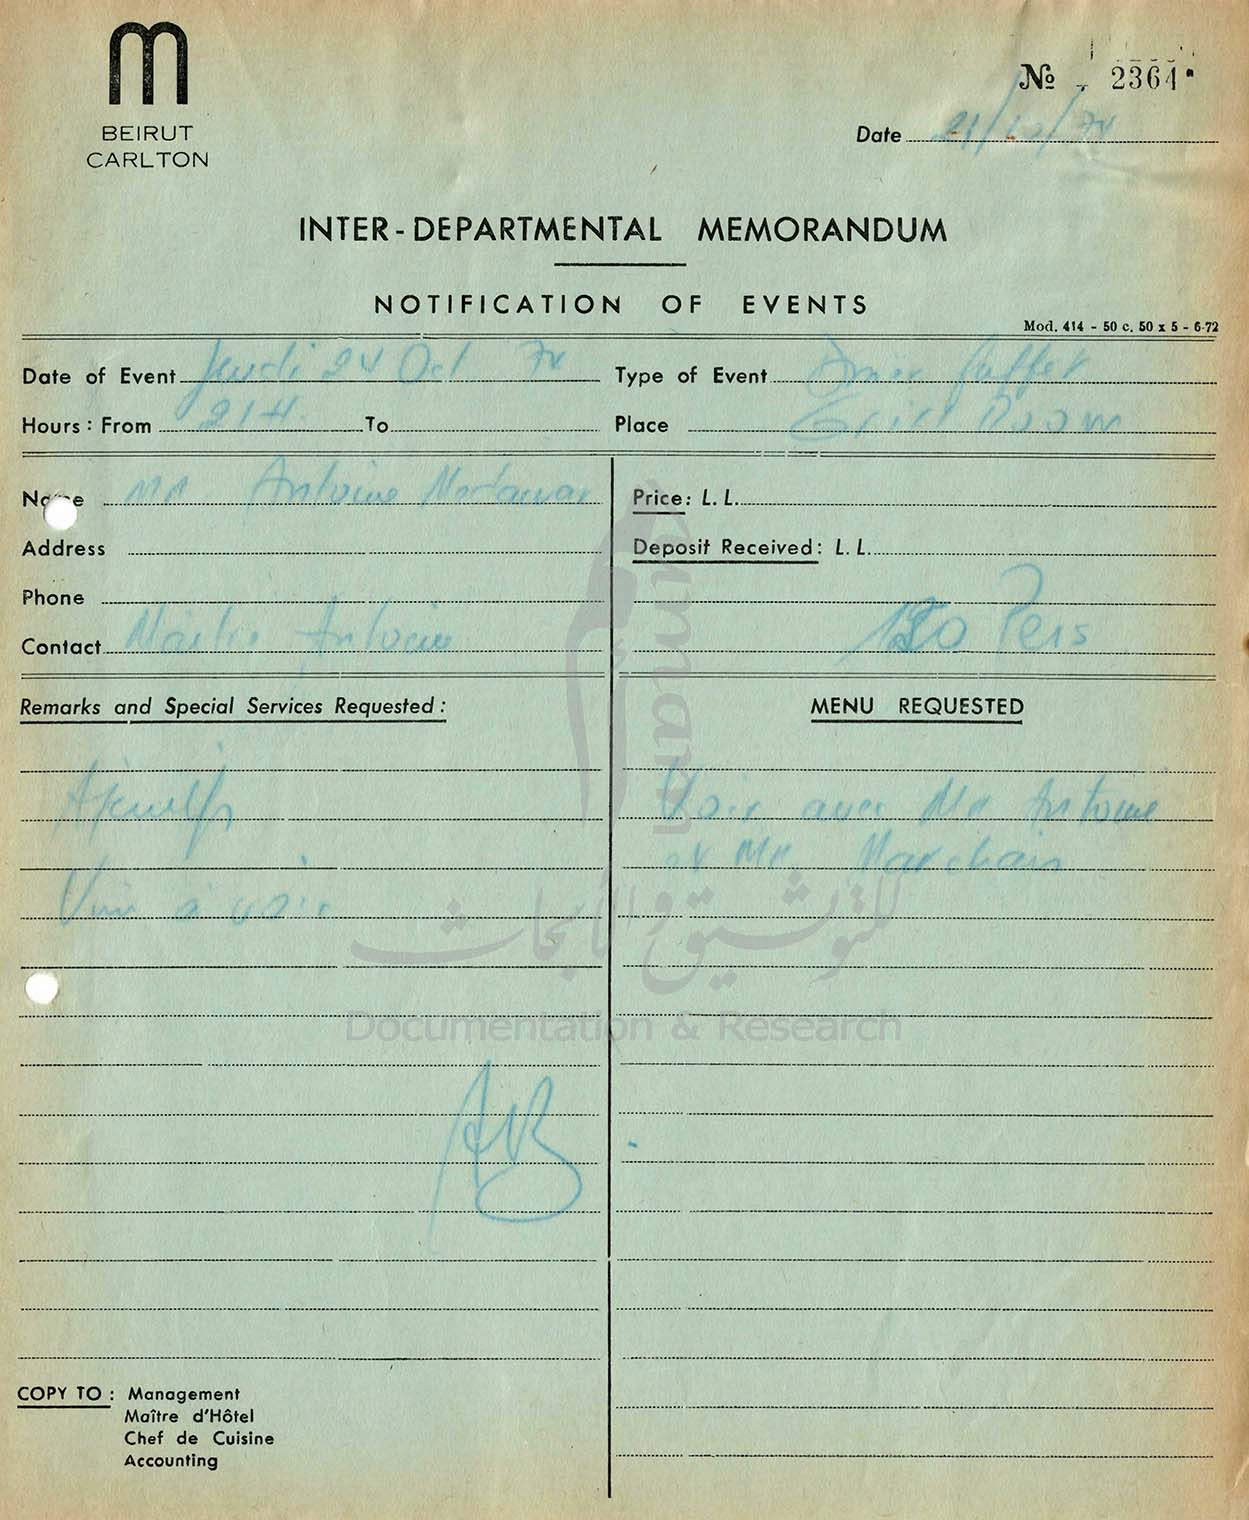 BEIRUT
CARLTON
№ 2364
Date 21/10/74
INTER-DEPARTMENTAL MEMORANDUM
NOTIFICATION OF EVENTS
Mod. 414 - 50 c. 50 x 5 - 6-72
Date of Event Jeudi 24 Oct 74
Type of Event Diner Buffet
Hours: From 21 H To
Place Grill Room
Name Mr Antoine
Price: L. L.
Address
Deposit Received: L. L.
Phone
Contact Maitre Antoine
Pers
Remarks and Special Services Requested:
MENU REQUESTED
Voir avec Mr Antoine
et Mr
à voir
umam
للتوثيق والأبحاث
Documentation & Research
COPY TO: Management
Maître d'Hôtel
Chef de Cuisine
Accounting